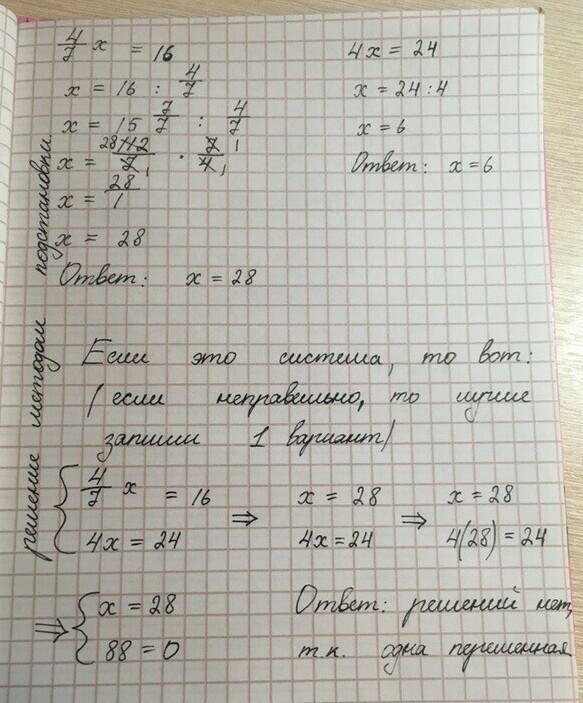 4/7 x = 16
x = 16 : 4/7
x = 15 7/7 : 4/7
x = 28 112/7 1 · 7/4 1 1
x = 28/1
x = 28
Ответ: x = 28
4x = 24
x = 24 : 4
x = 6
Ответ: x = 6
решение методом подстановки
Если это система, то вот:
(если неправельно, то лучше
запиши 1 вариант)
{ 4/7 x = 16
4x = 24
⇒ x = 28
4x = 24
⇒ x = 28
4(28) = 24
⇒ { x = 28
88 = 0
Ответ: решений нет,
т.к. одна переменная